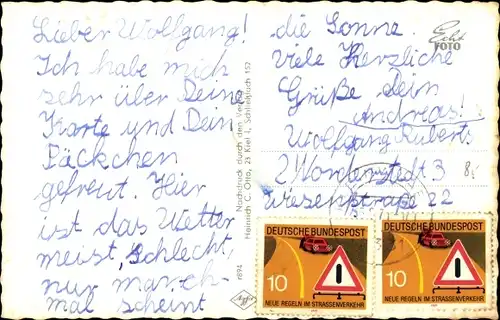 Lieber Wolfgang!
Ich habe mich
sehr über Deine
Karte und Dein
Päckchen
gefreut. Hier
ist das Wetter
meist schlecht,
nur manch-
mal scheint
die Sonne.
Viele Herzliche
Grüße dein
Andreas!
Wolfgang Ruberts
2 Norderstedt 3
Wiesenstraße 22
Echt
FOTO
Nachdruck durch den Verlag
Heinrich C. Otto, 23 Kiel 1, 152
n694
DEUTSCHE BUNDESPOST
10
NEUE REGELN IM STRASSENVERKEHR
DEUTSCHE BUNDESPOST
10
NEUE REGELN IM STRASSENVERKEHR